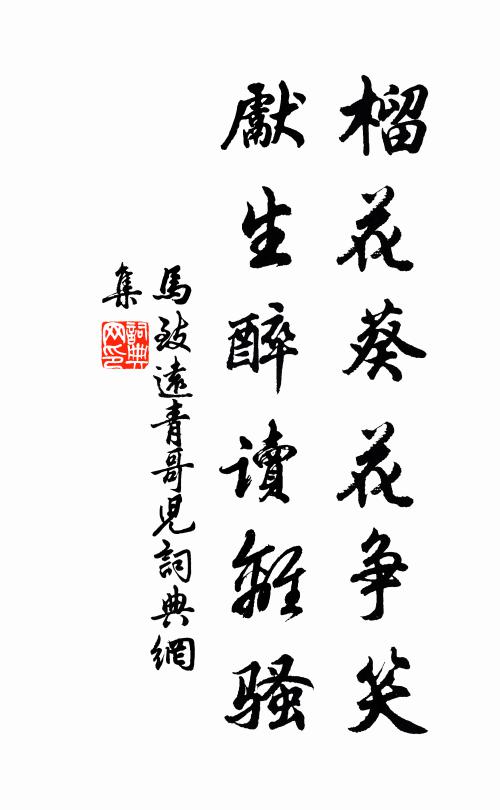 榴花葵花争笑
獻生醉讀離騷
馬致遠青哥児詞典網
集
詞典网印